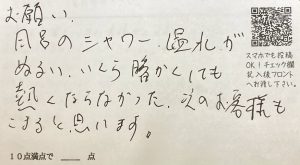 お願い.
風呂のシャワー.温水が
ぬるい.いくら暖かくしても
熱くならなかった.次のお客様も
こまると思います。
スマホでも投稿
OK!チェック欄
記入後フロント
へお渡し下さい。
10点満点で ___ 点